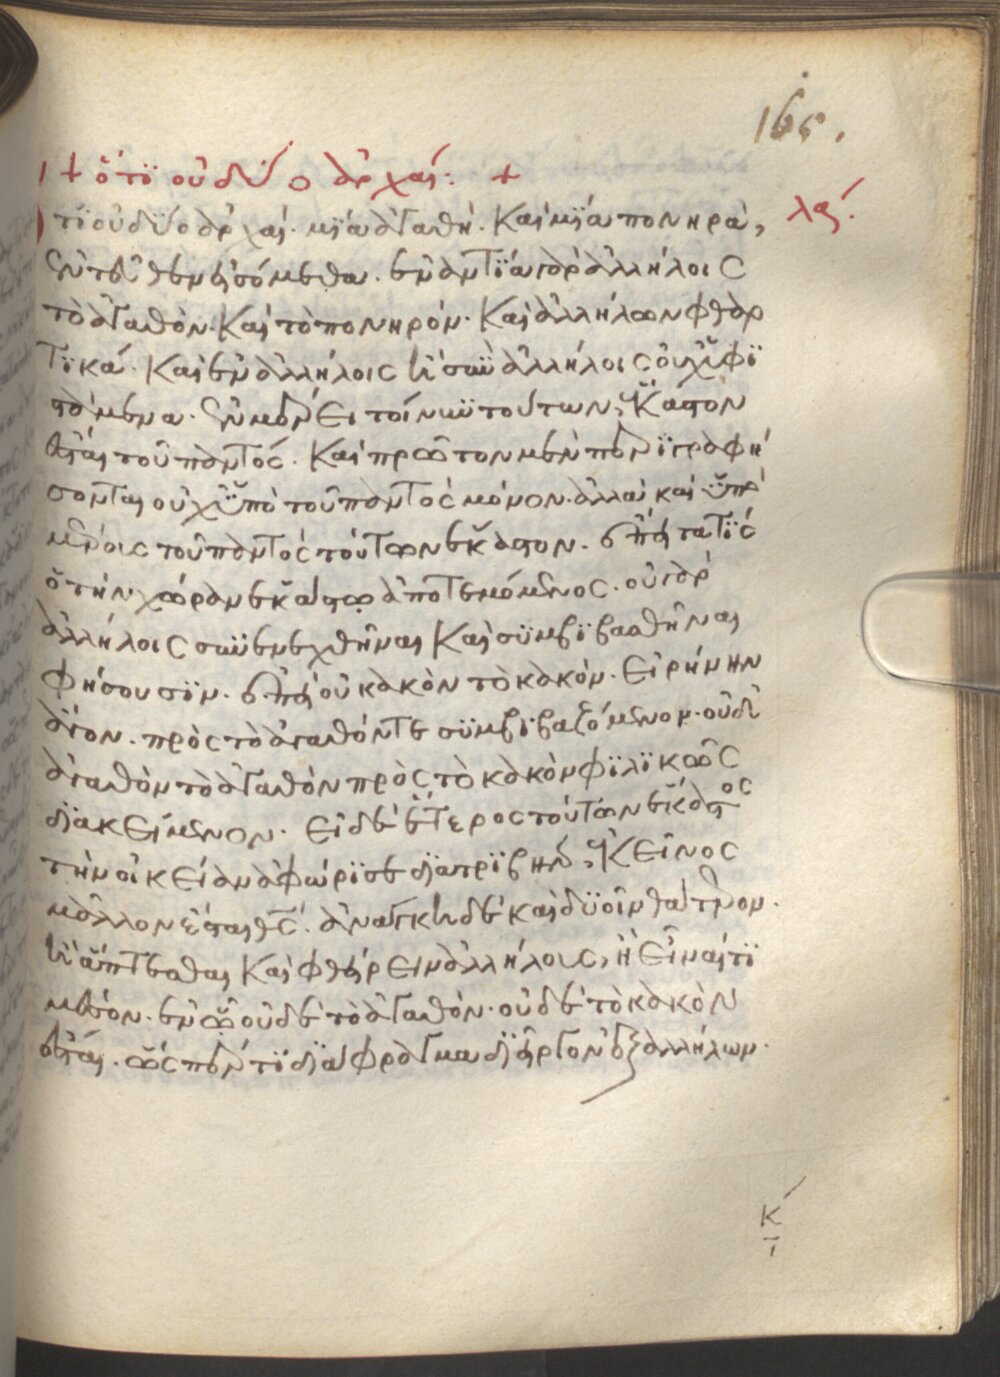 165.
+ ὅτι οὐ δύο ἀρχαί: +
λα΄.
τι οὐ δύο ἀρχαί. μία ἀγαθή. καὶ μία πονηρά,
ἐντεῦθεν εἰσόμεθα. ἐναντία γὰρ ἀλλήλοις
τὸ ἀγαθόν. καὶ τὸ πονηρόν. καὶ ἀλλήλων φθαρ
τικά. καὶ ἐν ἀλλήλοις ἢ σὺν ἀλλήλοις οὐχ ὑφι
στάμενα. ἐν μέρει τοίνυν τούτων, ἕκαστον
ἔσται τοῦ παντός. καὶ πρῶτον μὲν περιγραφή
σονται οὐχ ὑπὸ τοῦ παντὸς μόνον. ἀλλὰ καὶ ὑπὸ
μέροις τοῦ παντὸς τούτων ἕκαστον. ἔπειτα τίς
ὁ τὴν χώραν ἑκάστω ἀποτεμόμενος. οὐ γὰρ
ἀλλήλοις συνενεχθῆναι καὶ συμβιβασθῆναι
φήσουσιν. ἐπεὶ οὐ κακὸν τὸ κακόν. εἰρήνην
ἄγον. πρὸς τὸ ἀγαθόν τε συμβιβαζόμενον. οὐδὲ
ἀγαθὸν τὸ ἀγαθὸν πρὸς τὸ κακὸν φιλικῶς
διακείμενον. εἰ δὲ ἕτερος τούτων ἕκαστος
τὴν οἰκείαν ἀφώρισε διατριβήν, ἐκεῖνος
μᾶλλον ἔσται θς. ἀνάγκη δὲ καὶ δυοῖν θάτερον.
ἢ ἅπτεσθαι καὶ φθείρειν ἀλλήλοις, ἢ εἶναί τι
μέσον. ἐν ᾧ οὐδὲ τὸ ἀγαθόν. οὐδὲ τὸ κακὸν
ἔσται. ὥσπερ τι διάφραγμα διεῖργον ἐξ ἀλλήλων.